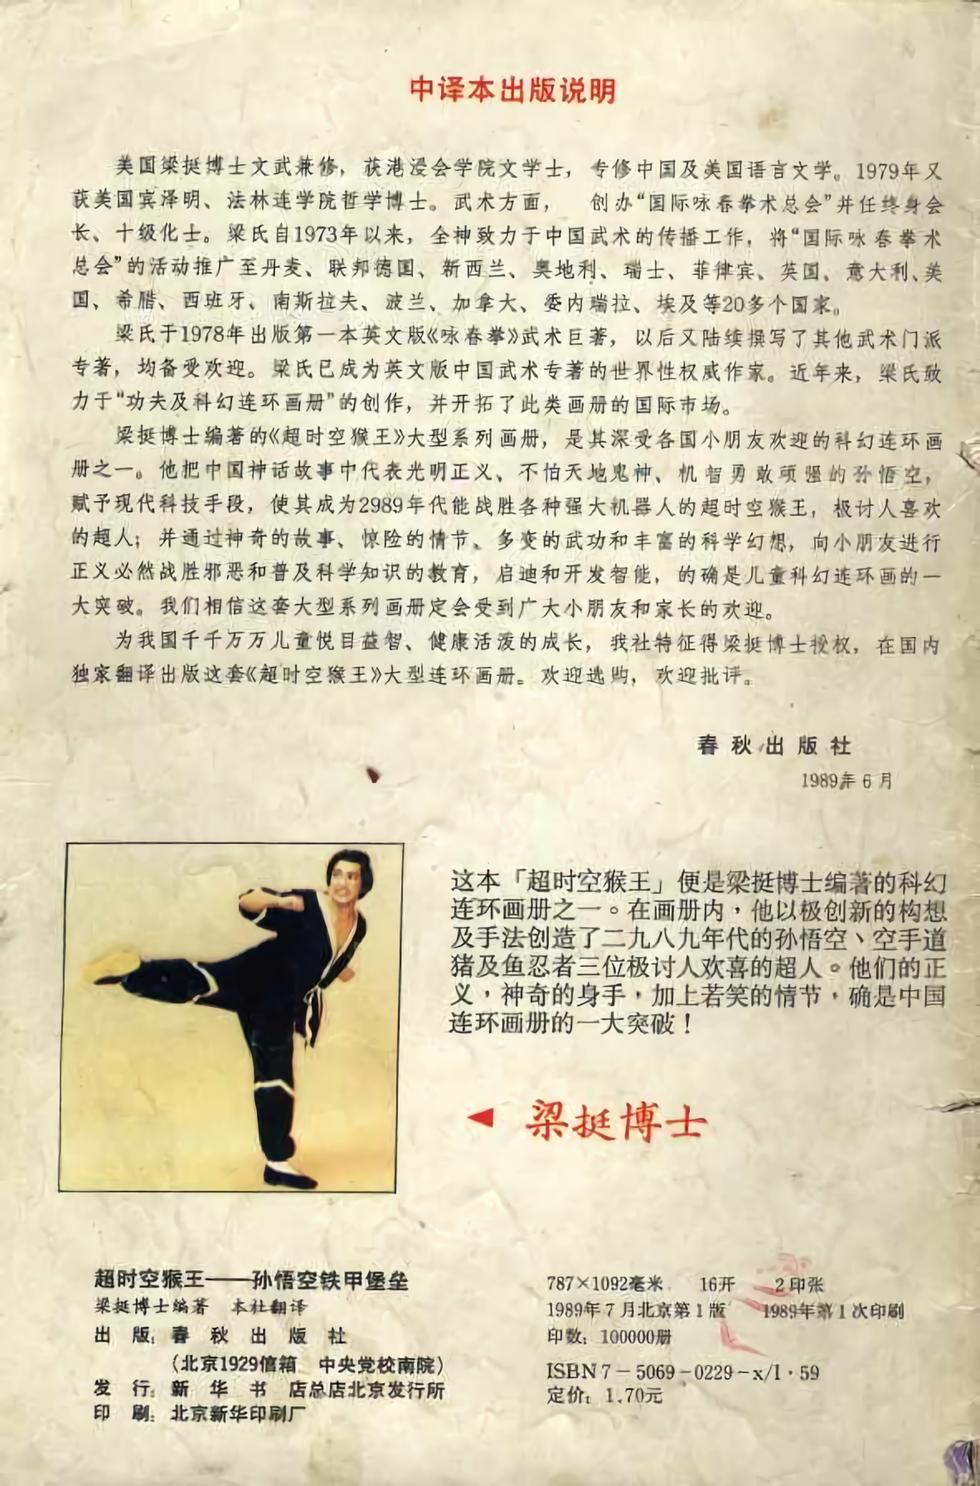 中译本出版说明
美国梁挺博士文武兼修，获港浸会学院文学士，专修中国及美国语言文学。1979年又
获美国宾泽明、法林连学院哲学博士。武术方面， 创办“国际咏春拳术总会”并任终身会
长、十级化士。梁氏自1973年以来，全神致力于中国武术的传播工作，将“国际咏春拳术
总会”的活动推广至丹麦、联邦德国、新西兰、奥地利、瑞士、菲律宾、英国、意大利、美
国、希腊、西班牙、南斯拉夫、波兰、加拿大、委内瑞拉、埃及等20多个国家。
梁氏于1978年出版第一本英文版《咏春拳》武术巨著，以后又陆续撰写了其他武术门派
专著，均备受欢迎。梁氏已成为英文版中国武术专著的世界性权威作家。近年来，梁氏致
力于“功夫及科幻连环画册”的创作，并开拓了此类画册的国际市场。
梁挺博士编著的《超时空猴王》大型系列画册，是其深受各国小朋友欢迎的科幻连环画
册之一。他把中国神话故事中代表光明正义、不怕天地鬼神、机智勇敢顽强的孙悟空，
赋予现代科技手段，使其成为2989年代能战胜各种强大机器人的超时空猴王，极讨人喜欢
的超人；并通过神奇的故事、惊险的情节、多变的武功和丰富的科学幻想，向小朋友进行
正义必然战胜邪恶和普及科学知识的教育，启迪和开发智能，的确是儿童科幻连环画的一
大突破。我们相信这套大型系列画册定会受到广大小朋友和家长的欢迎。
为我国千千万万儿童悦目益智、健康活泼的成长，我社特征得梁挺博士授权，在国内
独家翻译出版这套《超时空猴王》大型连环画册。欢迎选购，欢迎批评。
春秋出版社
1989年6月
这本「超时空猴王」便是梁挺博士编著的科幻
连环画册之一。在画册内，他以极创新的构想
及手法创造了二九八九年代的孙悟空、空手道
猪及鱼忍者三位极讨人欢喜的超人。他们的正
义，神奇的身手，加上若笑的情节，确是中国
连环画册的一大突破！
◀ 梁挺博士
超时空猴王——孙悟空铁甲堡垒
梁挺博士编著 本社翻译
出 版：春秋出版社
（北京1929信箱 中央党校南院）
发 行：新华书 店总店北京发行所
印 刷：北京新华印刷厂
787×1092毫米 16开 2印张
1989年7月北京第1版 1989年第1次印刷
印数：100000册
ISBN7－5069－0229－x/I·59
定价：1.70元